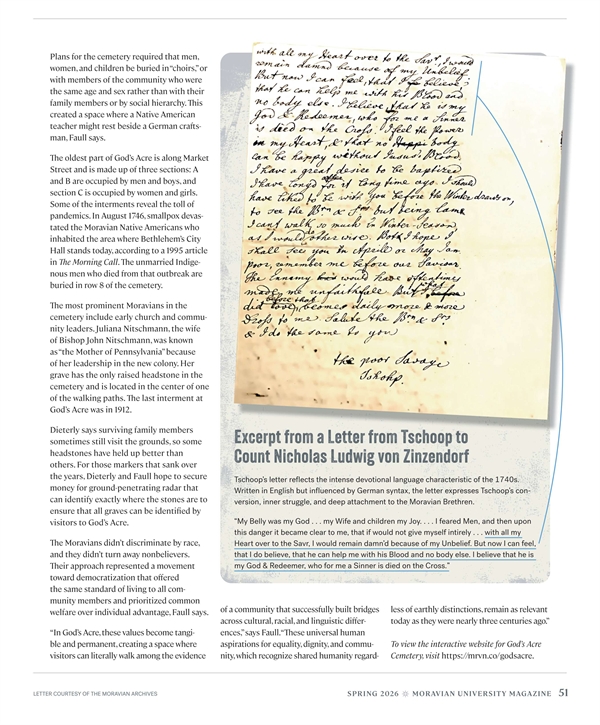 Plans for the cemetery required that men,
women, and children be buried in “choirs,” or
with members of the community who were
the same age and sex rather than with their
family members or by social hierarchy. This
created a space where a Native American
teacher might rest beside a German crafts-
man, Faull says.
The oldest part of God’s Acre is along Market
Street and is made up of three sections: A
and B are occupied by men and boys, and
section C is occupied by women and girls.
Some of the interments reveal the toll of
pandemics. In August 1746, smallpox devas-
tated the Moravian Native Americans who
inhabited the area where Bethlehem’s City
Hall stands today, according to a 1995 article
in The Morning Call. The unmarried Indige-
nous men who died from that outbreak are
buried in row 8 of the cemetery.
The most prominent Moravians in the
cemetery include early church and commu-
nity leaders. Juliana Nitschmann, the wife
of Bishop John Nitschmann, was known
as “the Mother of Pennsylvania” because
of her leadership in the new colony. Her
grave has the only raised headstone in the
cemetery and is located in the center of one
of the walking paths. The last interment at
God’s Acre was in 1912.
Dieterly says surviving family members
sometimes still visit the grounds, so some
headstones have held up better than
others. For those markers that sank over
the years, Dieterly and Faull hope to secure
money for ground-penetrating radar that
can identify exactly where the stones are to
ensure that all graves can be identified by
visitors to God’s Acre.
The Moravians didn’t discriminate by race,
and they didn’t turn away nonbelievers.
Their approach represented a movement
toward democratization that offered
the same standard of living to all com-
munity members and prioritized common
welfare over individual advantage, Faull says.
“In God’s Acre, these values become tangi-
ble and permanent, creating a space where
visitors can literally walk among the evidence
with all my Heart over to the Savr, I would
remain damnd because of my Unbelief.
But now I can feel, that I do believe,
that he can help me with his Blood and
no body else. I believe that he is my
God & Redeemer, who for me a Sinner
is died on the Cross. I feel the Power
in my Heart, & that no body
can be happy without Jesus's Blood.
I have a great desire to be baptized
I have longd after it long time ago. I should
have liked to be with You before the Winter draws on,
to see the Brn & Srs but being lame
I cant walk so much in Winter Season
as I would other wise. Both I hope I
shall see you in Aprill or May I am
poor, remember me before our Saviour
The Ennemy would have oftentimes
made me unfaithfull. But what
did before that, becomes daily more & more
Dross to me. Salute the Brn & Srs
& I do the same to you
the poor Savage
Tschoop.
Excerpt from a Letter from Tschoop to
Count Nicholas Ludwig von Zinzendorf
Tschoop’s letter reflects the intense devotional language characteristic of the 1740s.
Written in English but influenced by German syntax, the letter expresses Tschoop’s con-
version, inner struggle, and deep attachment to the Moravian Brethren.
“My Belly was my God . . . my Wife and children my Joy. . . . I feared Men, and then upon
this danger it became clear to me, that if would not give myself intirely . . . with all my
Heart over to the Savr, I would remain damn’d because of my Unbelief. But now I can feel,
that I do believe, that he can help me with his Blood and no body else. I believe that he is
my God & Redeemer, who for me a Sinner is died on the Cross.”
of a community that successfully built bridges
across cultural, racial, and linguistic differ-
ences,” says Faull. “These universal human
aspirations for equality, dignity, and commu-
nity, which recognize shared humanity regard-
less of earthly distinctions, remain as relevant
today as they were nearly three centuries ago.”
To view the interactive website for God’s Acre
Cemetery, visit https://mrvn.co/godsacre.
LETTER COURTESY OF THE MORAVIAN ARCHIVES
SPRING 2026 MORAVIAN UNIVERSITY MAGAZINE 51